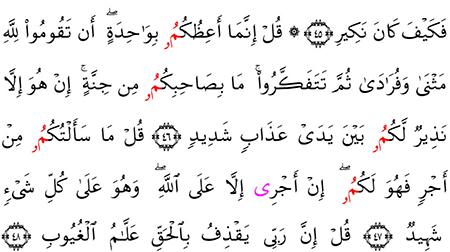 فَكَيْفَ كَانَ نَكِيرِ ۝٤٥ ۞ قُلْ إِنَّمَا أَعِظُكُمُۥ بِوَٰحِدَةٍ ۖ أَن تَقُومُوا۟ لِلَّهِ
مَثْنَىٰ وَفُرَٰدَىٰ ثُمَّ تَتَفَكَّرُوا۟ ۚ مَا بِصَاحِبِكُمُۥ مِن جِنَّةٍ ۚ إِنْ هُوَ إِلَّا
نَذِيرٌ لَّكُمُۥ بَيْنَ يَدَىْ عَذَابٍ شَدِيدٍ ۝٤٦ قُلْ مَا سَأَلْتُكُمُۥ مِنْ
أَجْرٍ فَهُوَ لَكُمُۥ ۖ إِنْ أَجْرِى إِلَّا عَلَى اللَّهِ ۖ وَهُوَ عَلَىٰ كُلِّ شَىْءٍ
شَهِيدٌ ۝٤٧ قُلْ إِنَّ رَبِّى يَقْذِفُ بِالْحَقِّ عَلَّٰمُ الْغُيُوبِ ۝٤٨